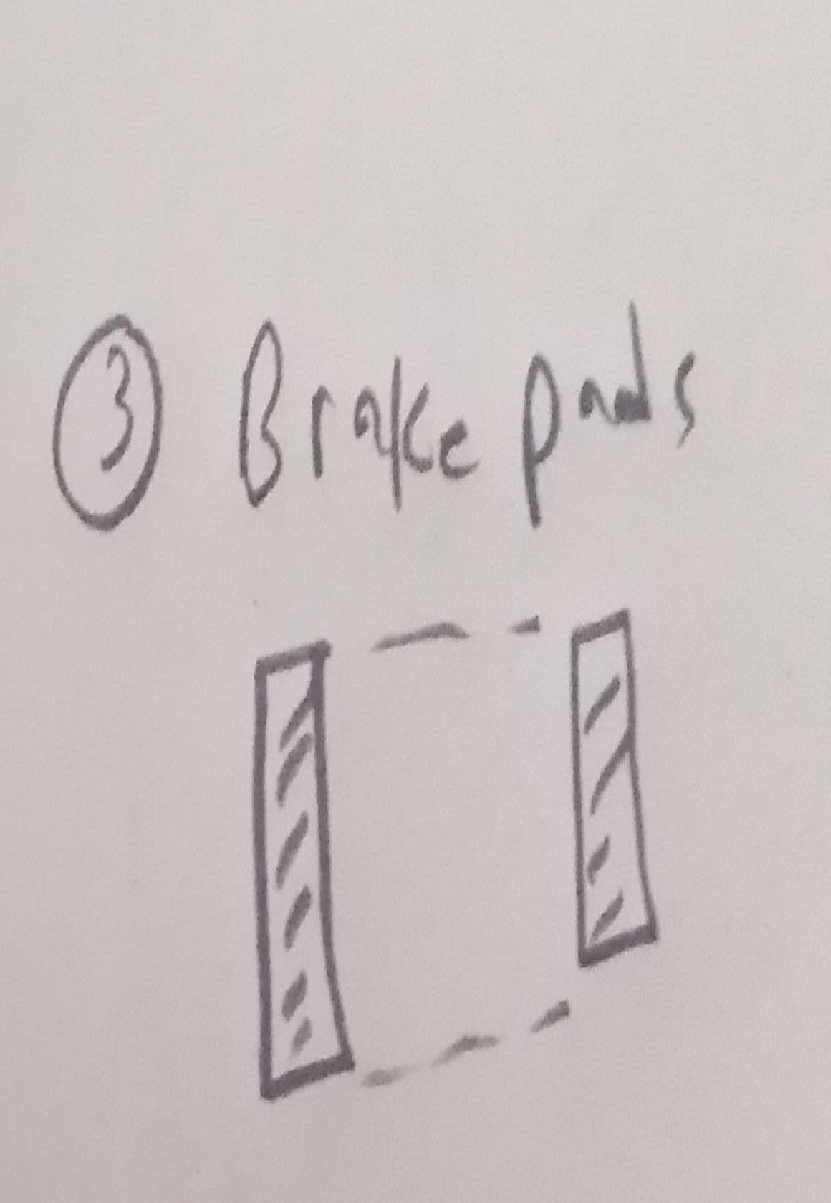 ③ Brake pads